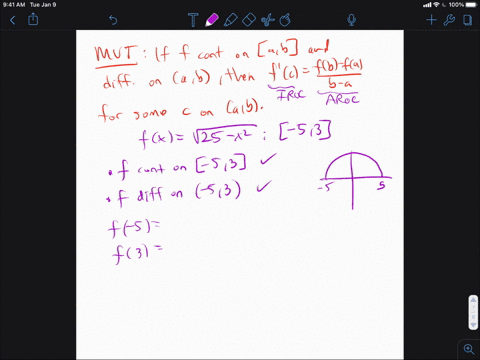 9:41 AM Tue Jan 9
100%
MVT: If f cont on [a,b] and
diff. on (a,b), then f'(c) = f(b)-f(a) / b-a
IROC AROC
for some c on (a,b).
f(x) = √25-x² ; [-5,3]
• f cont on [-5,3] ✓
• f diff on (-5,3) ✓
-5 5
f(-5) =
f(3) =